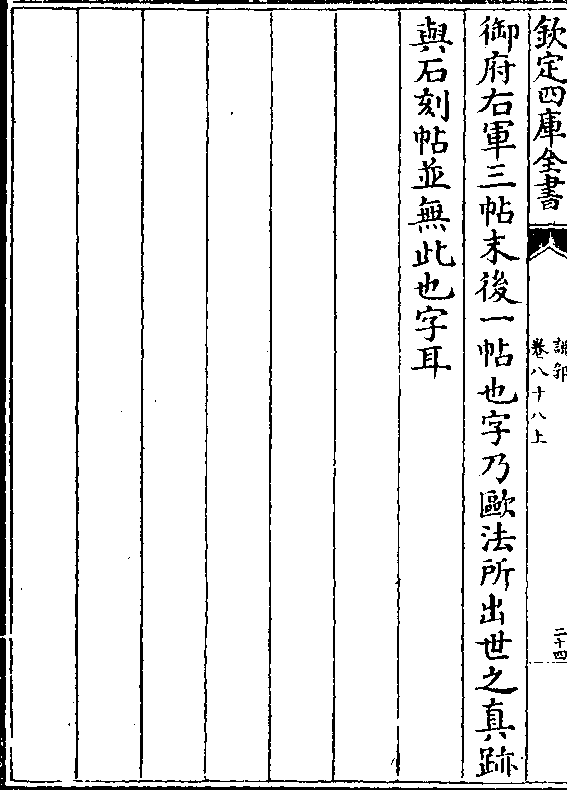 欽定四庫全書
說郛
卷八十八上
二十四
御府右軍三帖末後一帖也字乃歐法所出世之真跡
與石刻帖並無此也字耳